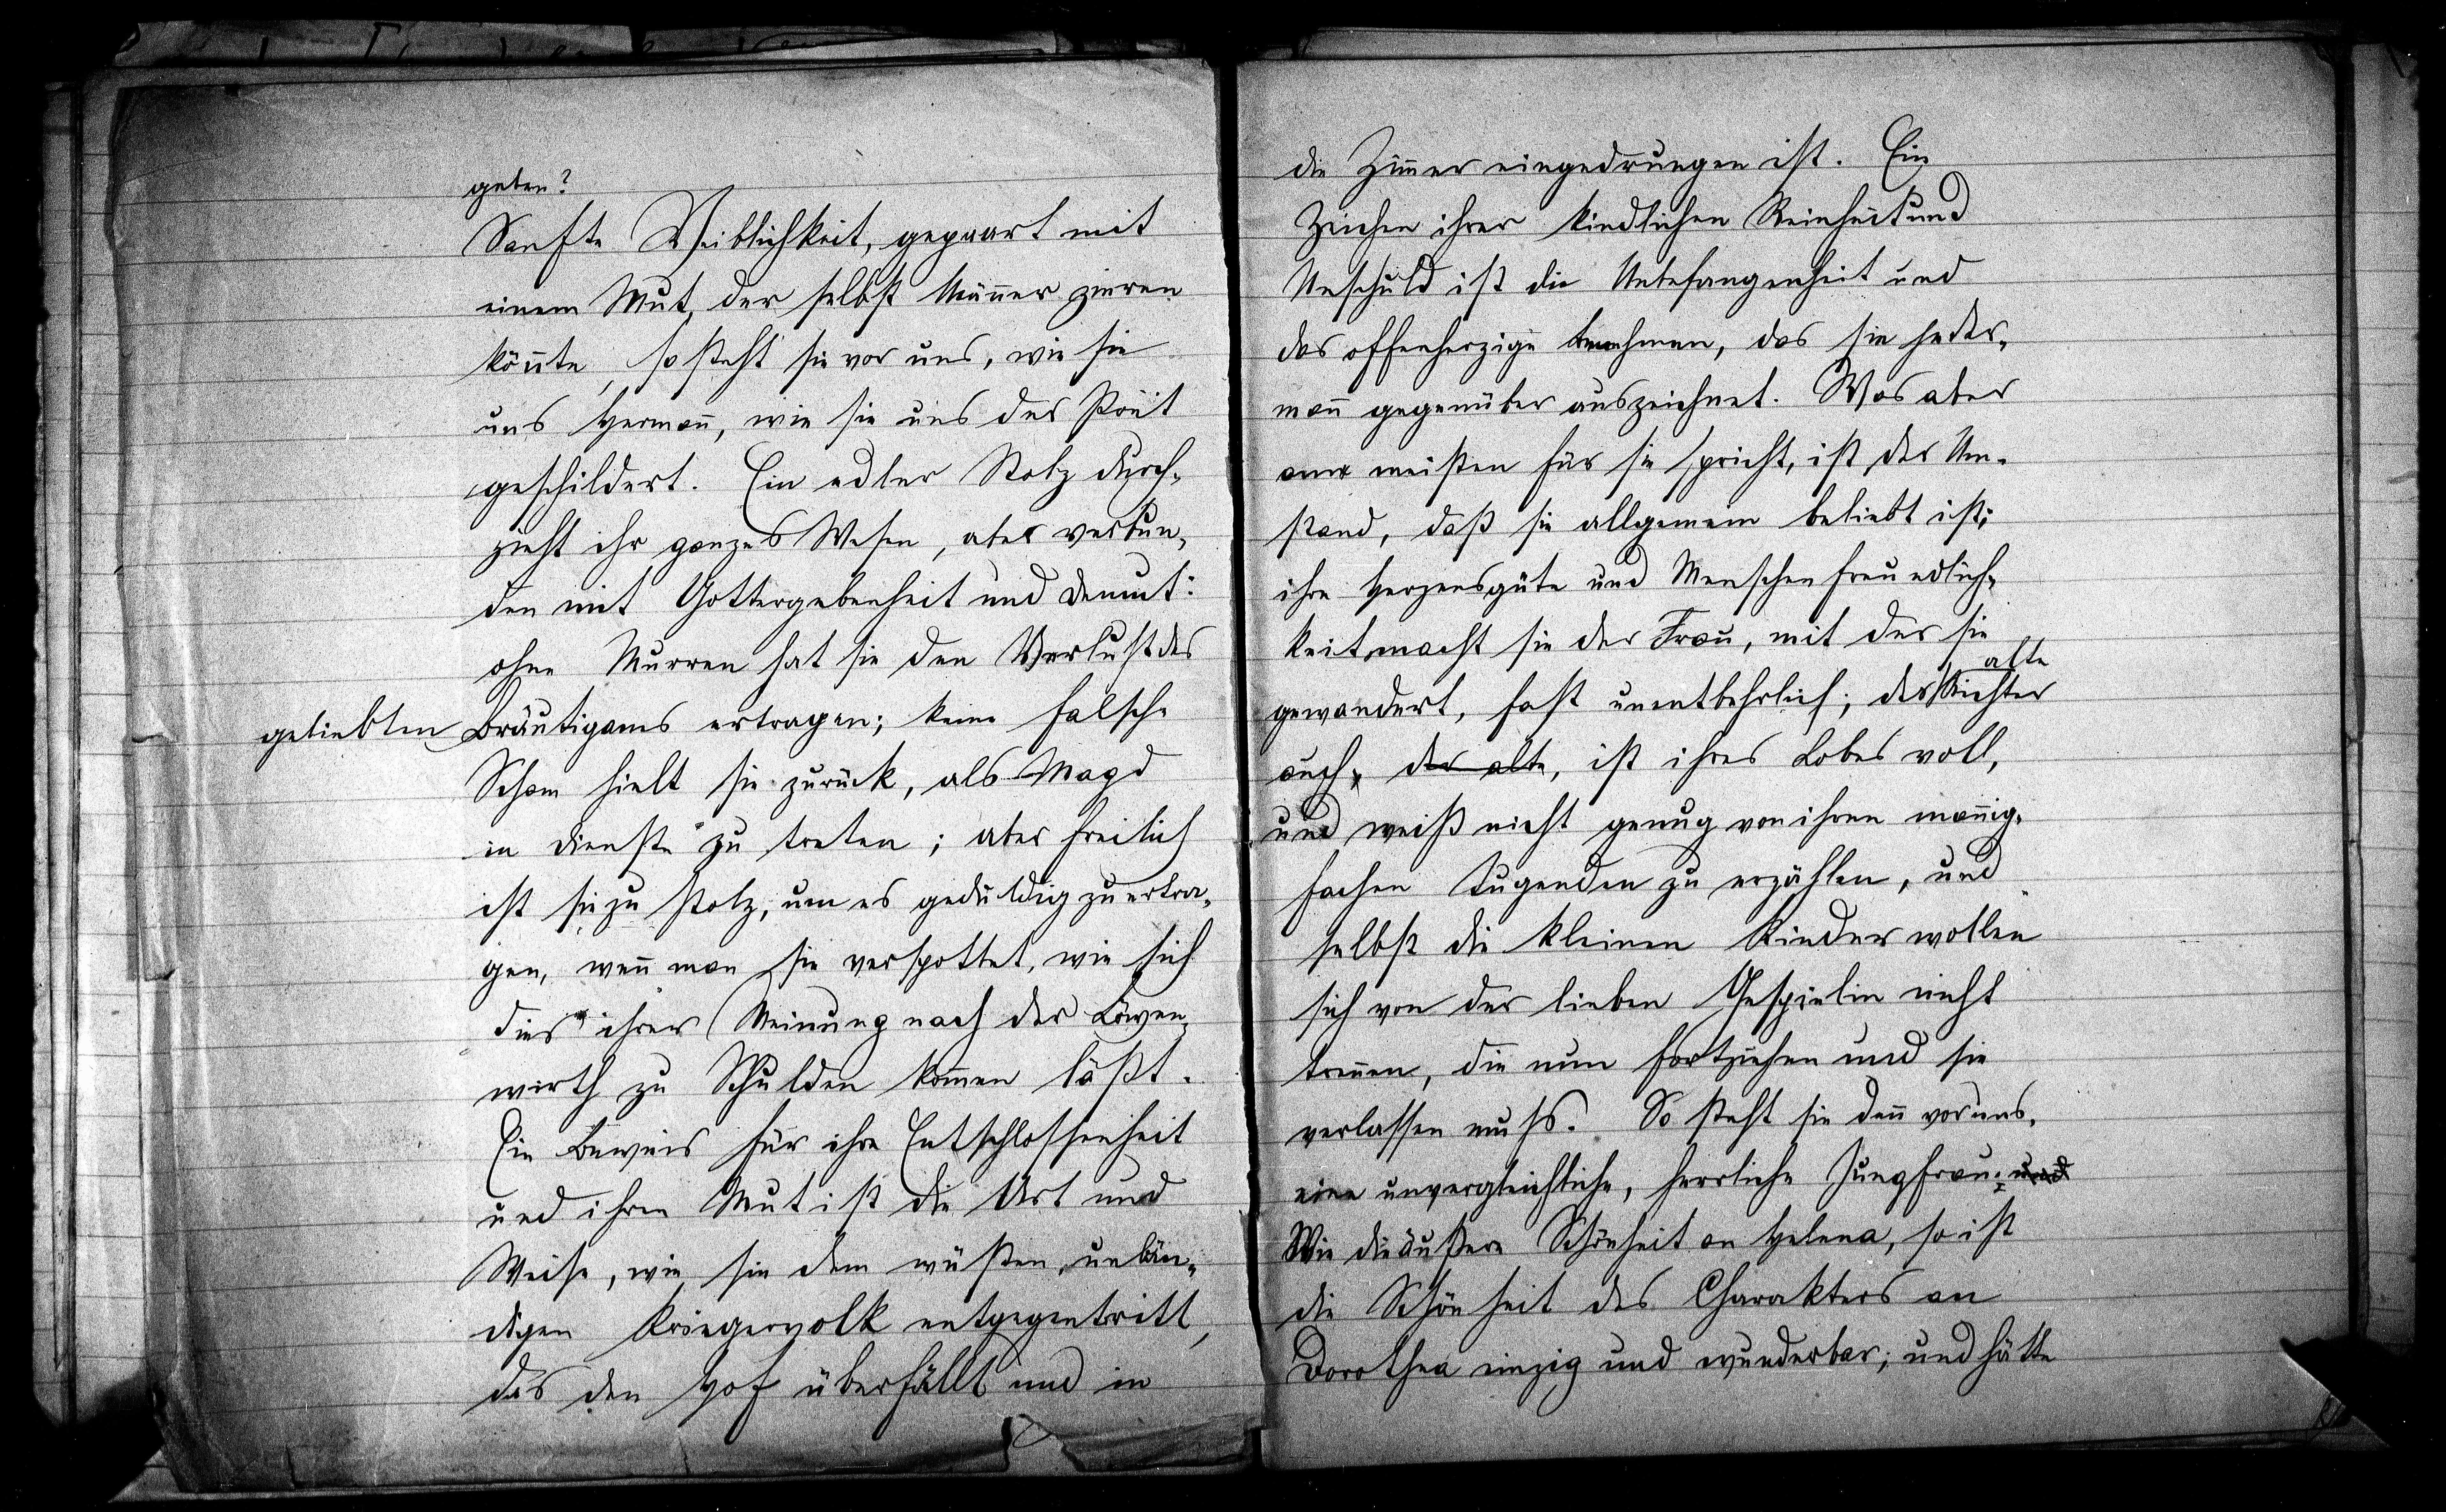 geben?
Sanfte Weiblichkeit, gepaart mit
einem Mut, der selbst Männer zieren
könnte, so steht sie vor uns, wie sie
uns Hermañ, wie sie uns der Poët
geschildert. Ein edler Stolz durch-
zieht ihr ganzes Wesen, aber verbun-
den mit Gottergebenheit und Demut:
ohne Murren hat sie den Verlust des
geliebten Bräutigams ertragen; keine falsche
Scham hielt sie zurück, als Magd
in Dienste zu treten; aber freilich
ist sie zu stolz, um es geduldig zu ertra-
gen, weñ man sie verspottet, wie sich
dies ihrer Meinung nach der Löwen-
wirth zu Schulden kom̄en läßt.
Ein Beweis für ihre Entschlossenheit
und ihren Mut ist die Art und
Weise, wie sie dem wüsten, unbän-
digen Kriegervolk entgegentritt,
das den Hof überfällt und in
die Zim̄er eingedrungen ist. Ein
Zeichen ihrer kindlichen Reinheit und
Unschuld ist die Unbefangenheit und
das offenherzige Benehmen, das sie jeder-
mañ gegenüber auszeichnet. Was aber
am meisten für sie spricht, ist der Um-
stand, daß sie allgemein beliebt ist;
ihre Herzensgüte und Menschenfreundlich-
keit macht sie der Frau, mit der sie
gewandert, fast unentbehrlich; der alte Richter
auch, der alte, ist ihres Lobes voll,
und weiß nicht genug von ihren mañig-
fachen Tugenden zu erzählen, und
selbst die kleinen Kinder wollen
sich von der lieben Gespielin nicht
treñen, die nun fortziehen und sie
verlassen muss. So steht sie deñ vor uns,
eine unvergleichliche, herrliche Jungfrau; und
Wie die äußere Schönheit an Helena, so ist
die Schönheit des Charakters an
Dorothea einzig und wunderbar; und hätte